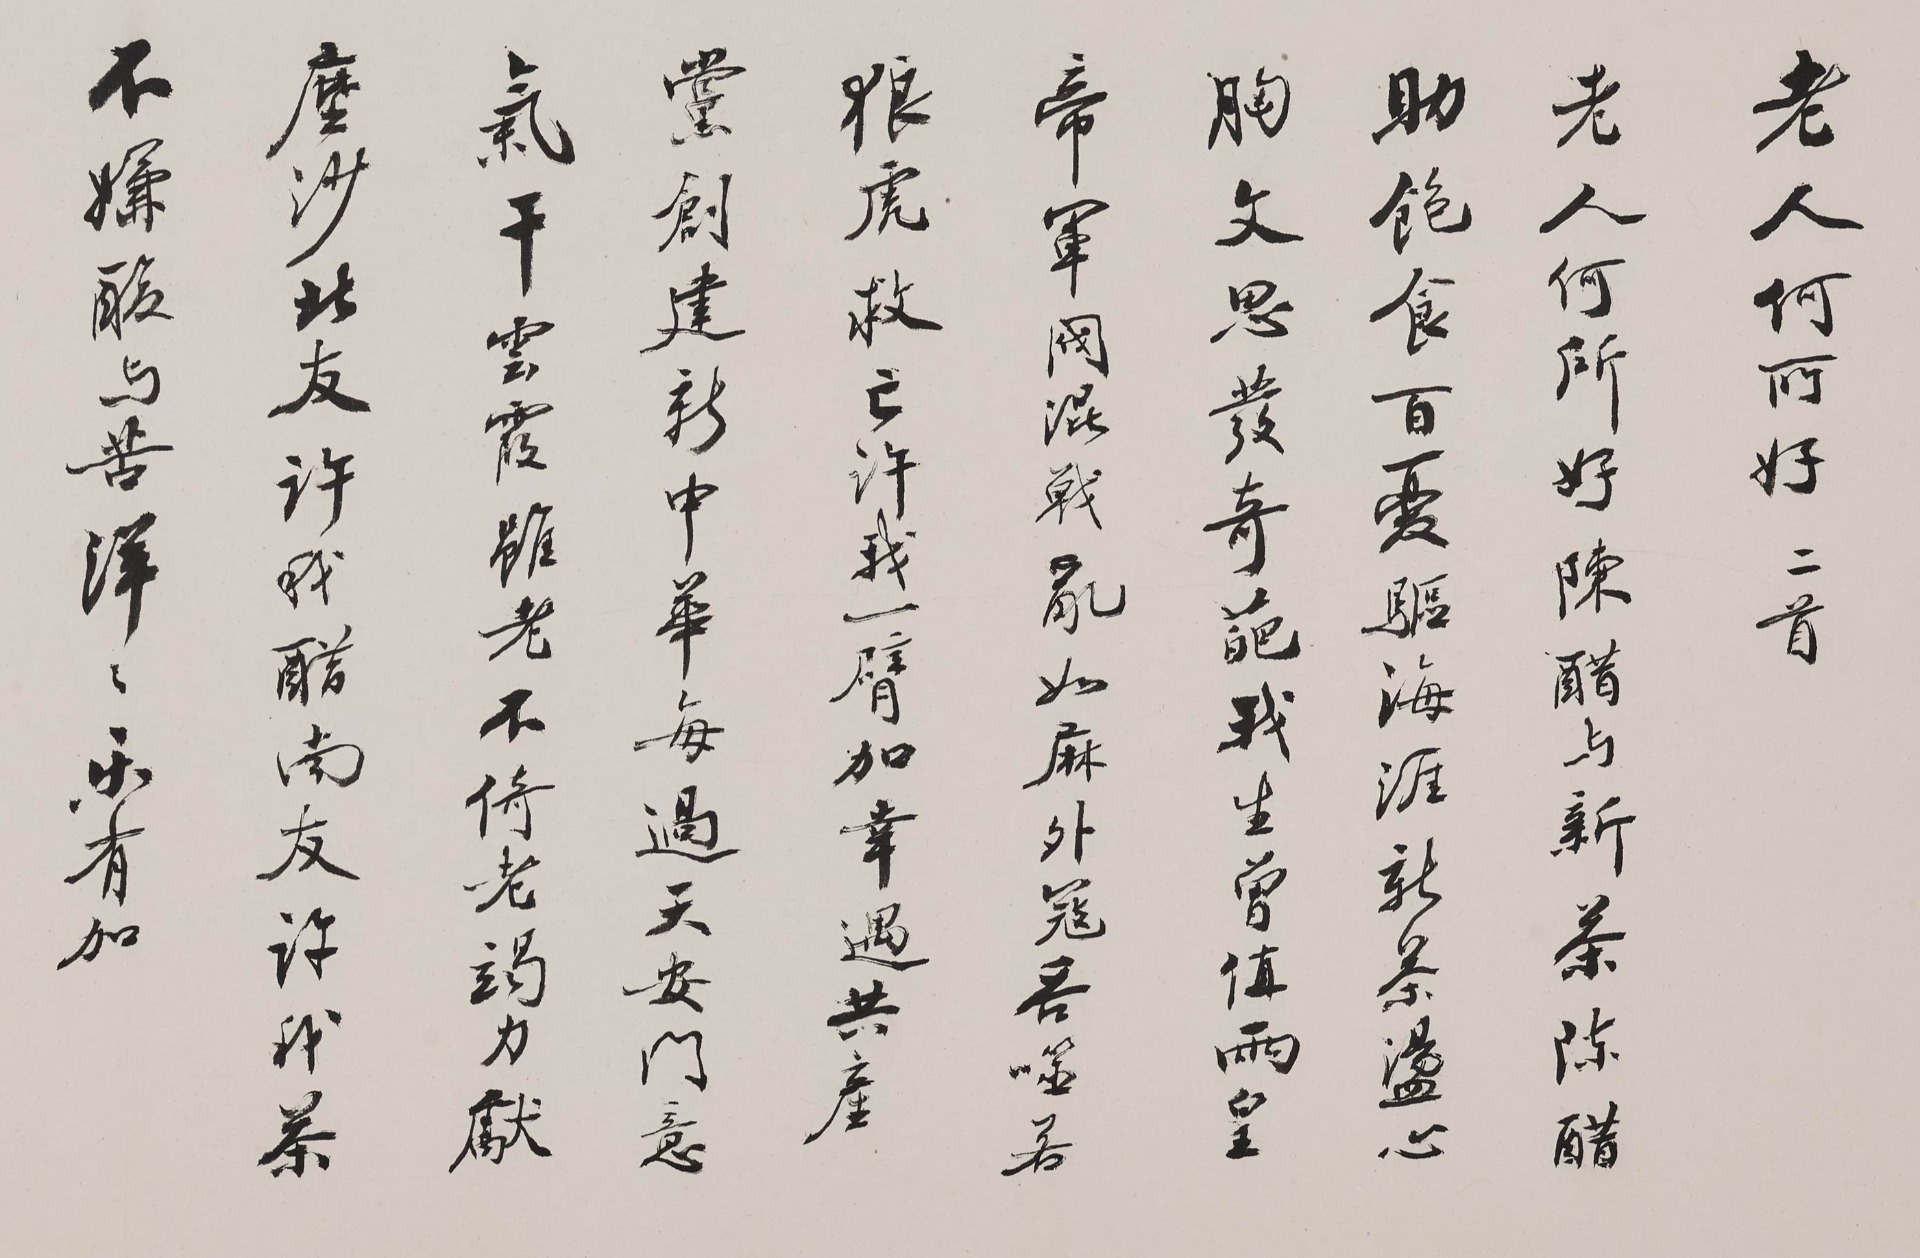 老人何所好 二首
老人何所好陳醋与新茶陈醋
助飽食百憂驅海涯新茶盪心
胸文思發奇葩我生曾值兩皇
帝軍閥混戰亂如麻外寇吞噬若
狼虎救亡许我一臂加幸遇共産
黨創建新中華每過天安門意
氣干雲霞雖老不倚老竭力獻
塵沙北友许我醋南友许我茶
不嫌酸与苦洋〻乐有加